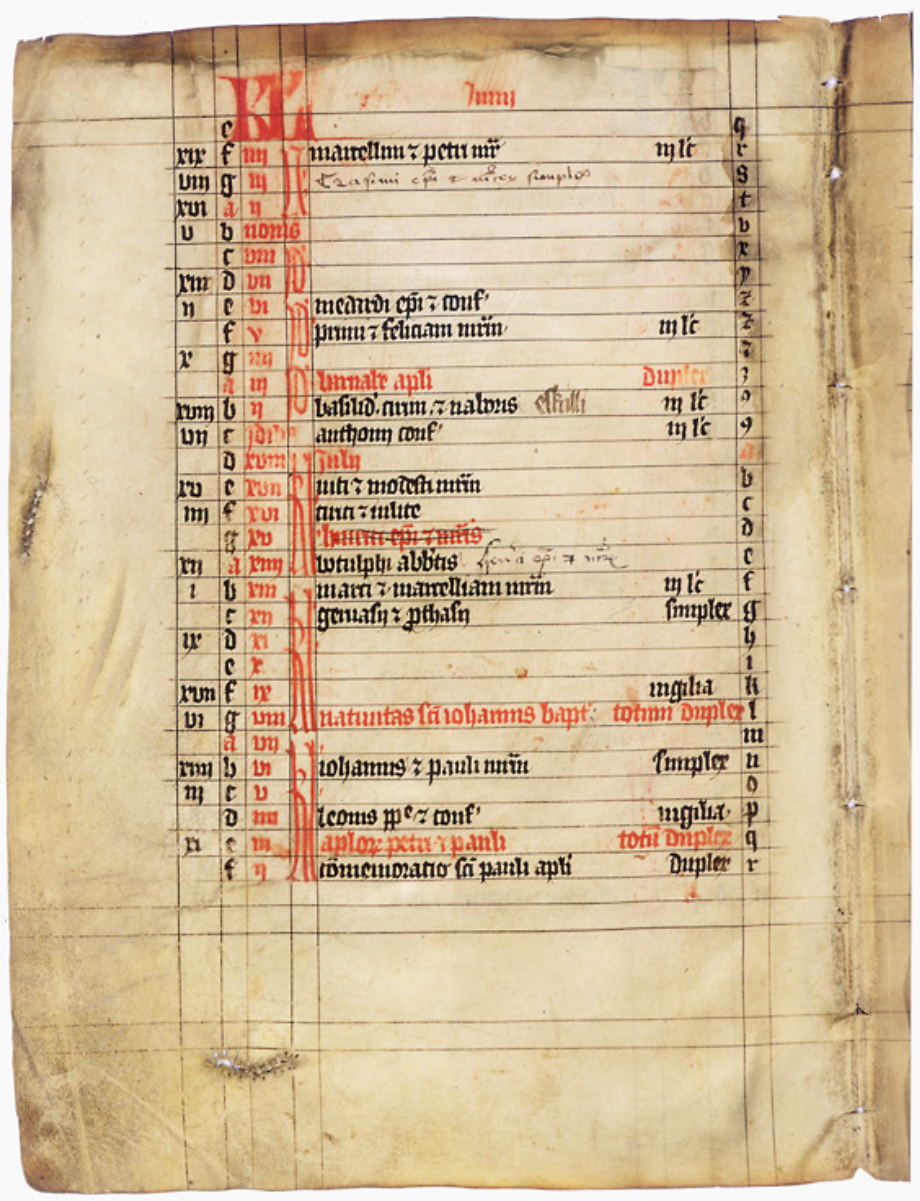 KL Junij
e q
xix f iiij N marcellini ⁊ petri mr̄ iij lc̄
viij g iij Erasimi ep̄i ⁊ mr̄ex simplex s
xvi a ij t
v b nonis v
c viij Id x
xiii d vij y
ij e vi medardi ep̄i ⁊ conf' z
f v Id primi ⁊ feliciani mr̄m iij lc̄ z
x g iiij
a iij Id barnabe apl̄i duplex
xviij b ij basilid' cirini ⁊ naboris eskilli iij lc̄ 9
vij c idibus anthonij conf' iij lc̄ 9
d xviii Julij a
xv e xvij kl uiti ⁊ modesti mr̄m b
iiij f xvi cirici ⁊ iulite c
g xv ep̄i ⁊ mr̄is d
xij a xiiij botulphi abb̄tis ep̄i ⁊ e
i b xiii marci ⁊ marcelliani mr̄m iij lc̄ f
c xij kl geruasij ⁊ ꝓthasij simplex g
ix d xi h
e x i
xvij f ix uigilia k
vi g viij natiuitas sc̄i iohannis bapt' totum duplex l
a vij m
xiiij b vi iohannis ⁊ pauli mr̄m simplex n
iij c v kl o
d iiij leonis pp̄e ⁊ conf' uigilia p
xi e iij aplorꝫ petri ⁊ pauli totū duplex q
f ij cōmemoratio sc̄i pauli apl̄i duplex r